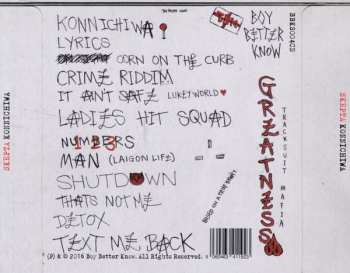 KONNICHIWA
LYRICS
CORN ON THE CURB
CRIME RIDDIM
IT AIN'T SAFE LUKEYWORLD ♥
LADIES HIT SQUAD
NUMBERS
123
MAN (LAIGON LIFE)
SHUTDOWN
THATS NOT ME
DETOX
TEXT ME BACK
BOY
BETTER
KNOW
GREATNESS
TRACKSUIT MAFIA
BASED ON A TRUE STORY
(P) & © 2016 Boy Better Know. All Rights Reserved.
SKEPTA KONNICHIWA
SKEPTA KONNICHIWA